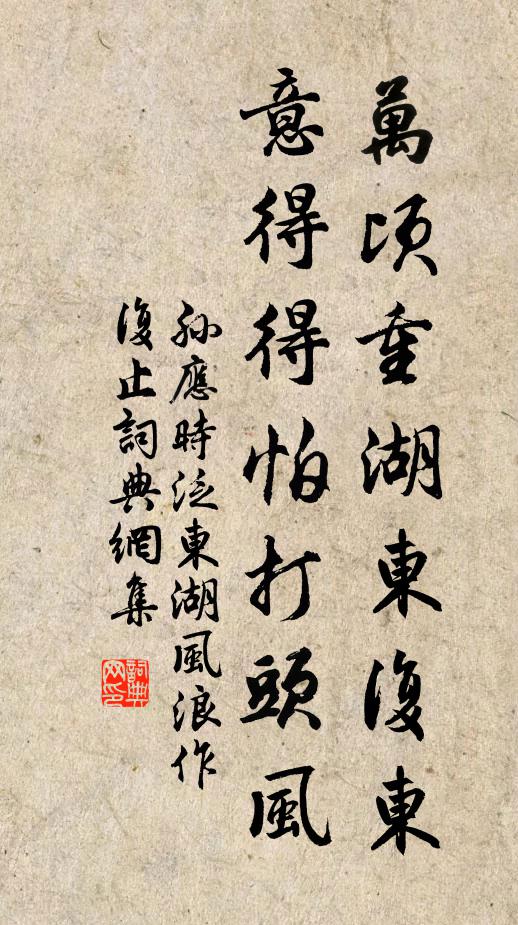 萬頃重湖東復東
意得得怕打頭風
孙應時泛東湖風浪作
復止詞典網集
詞典网印